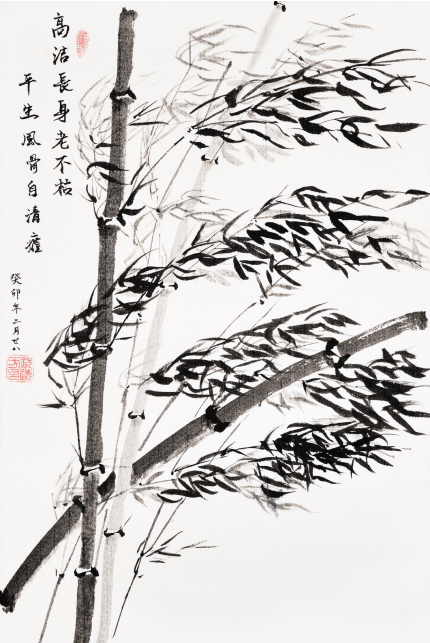 高洁長身老不枯
平生風骨自清癯
癸卯年二月廿八